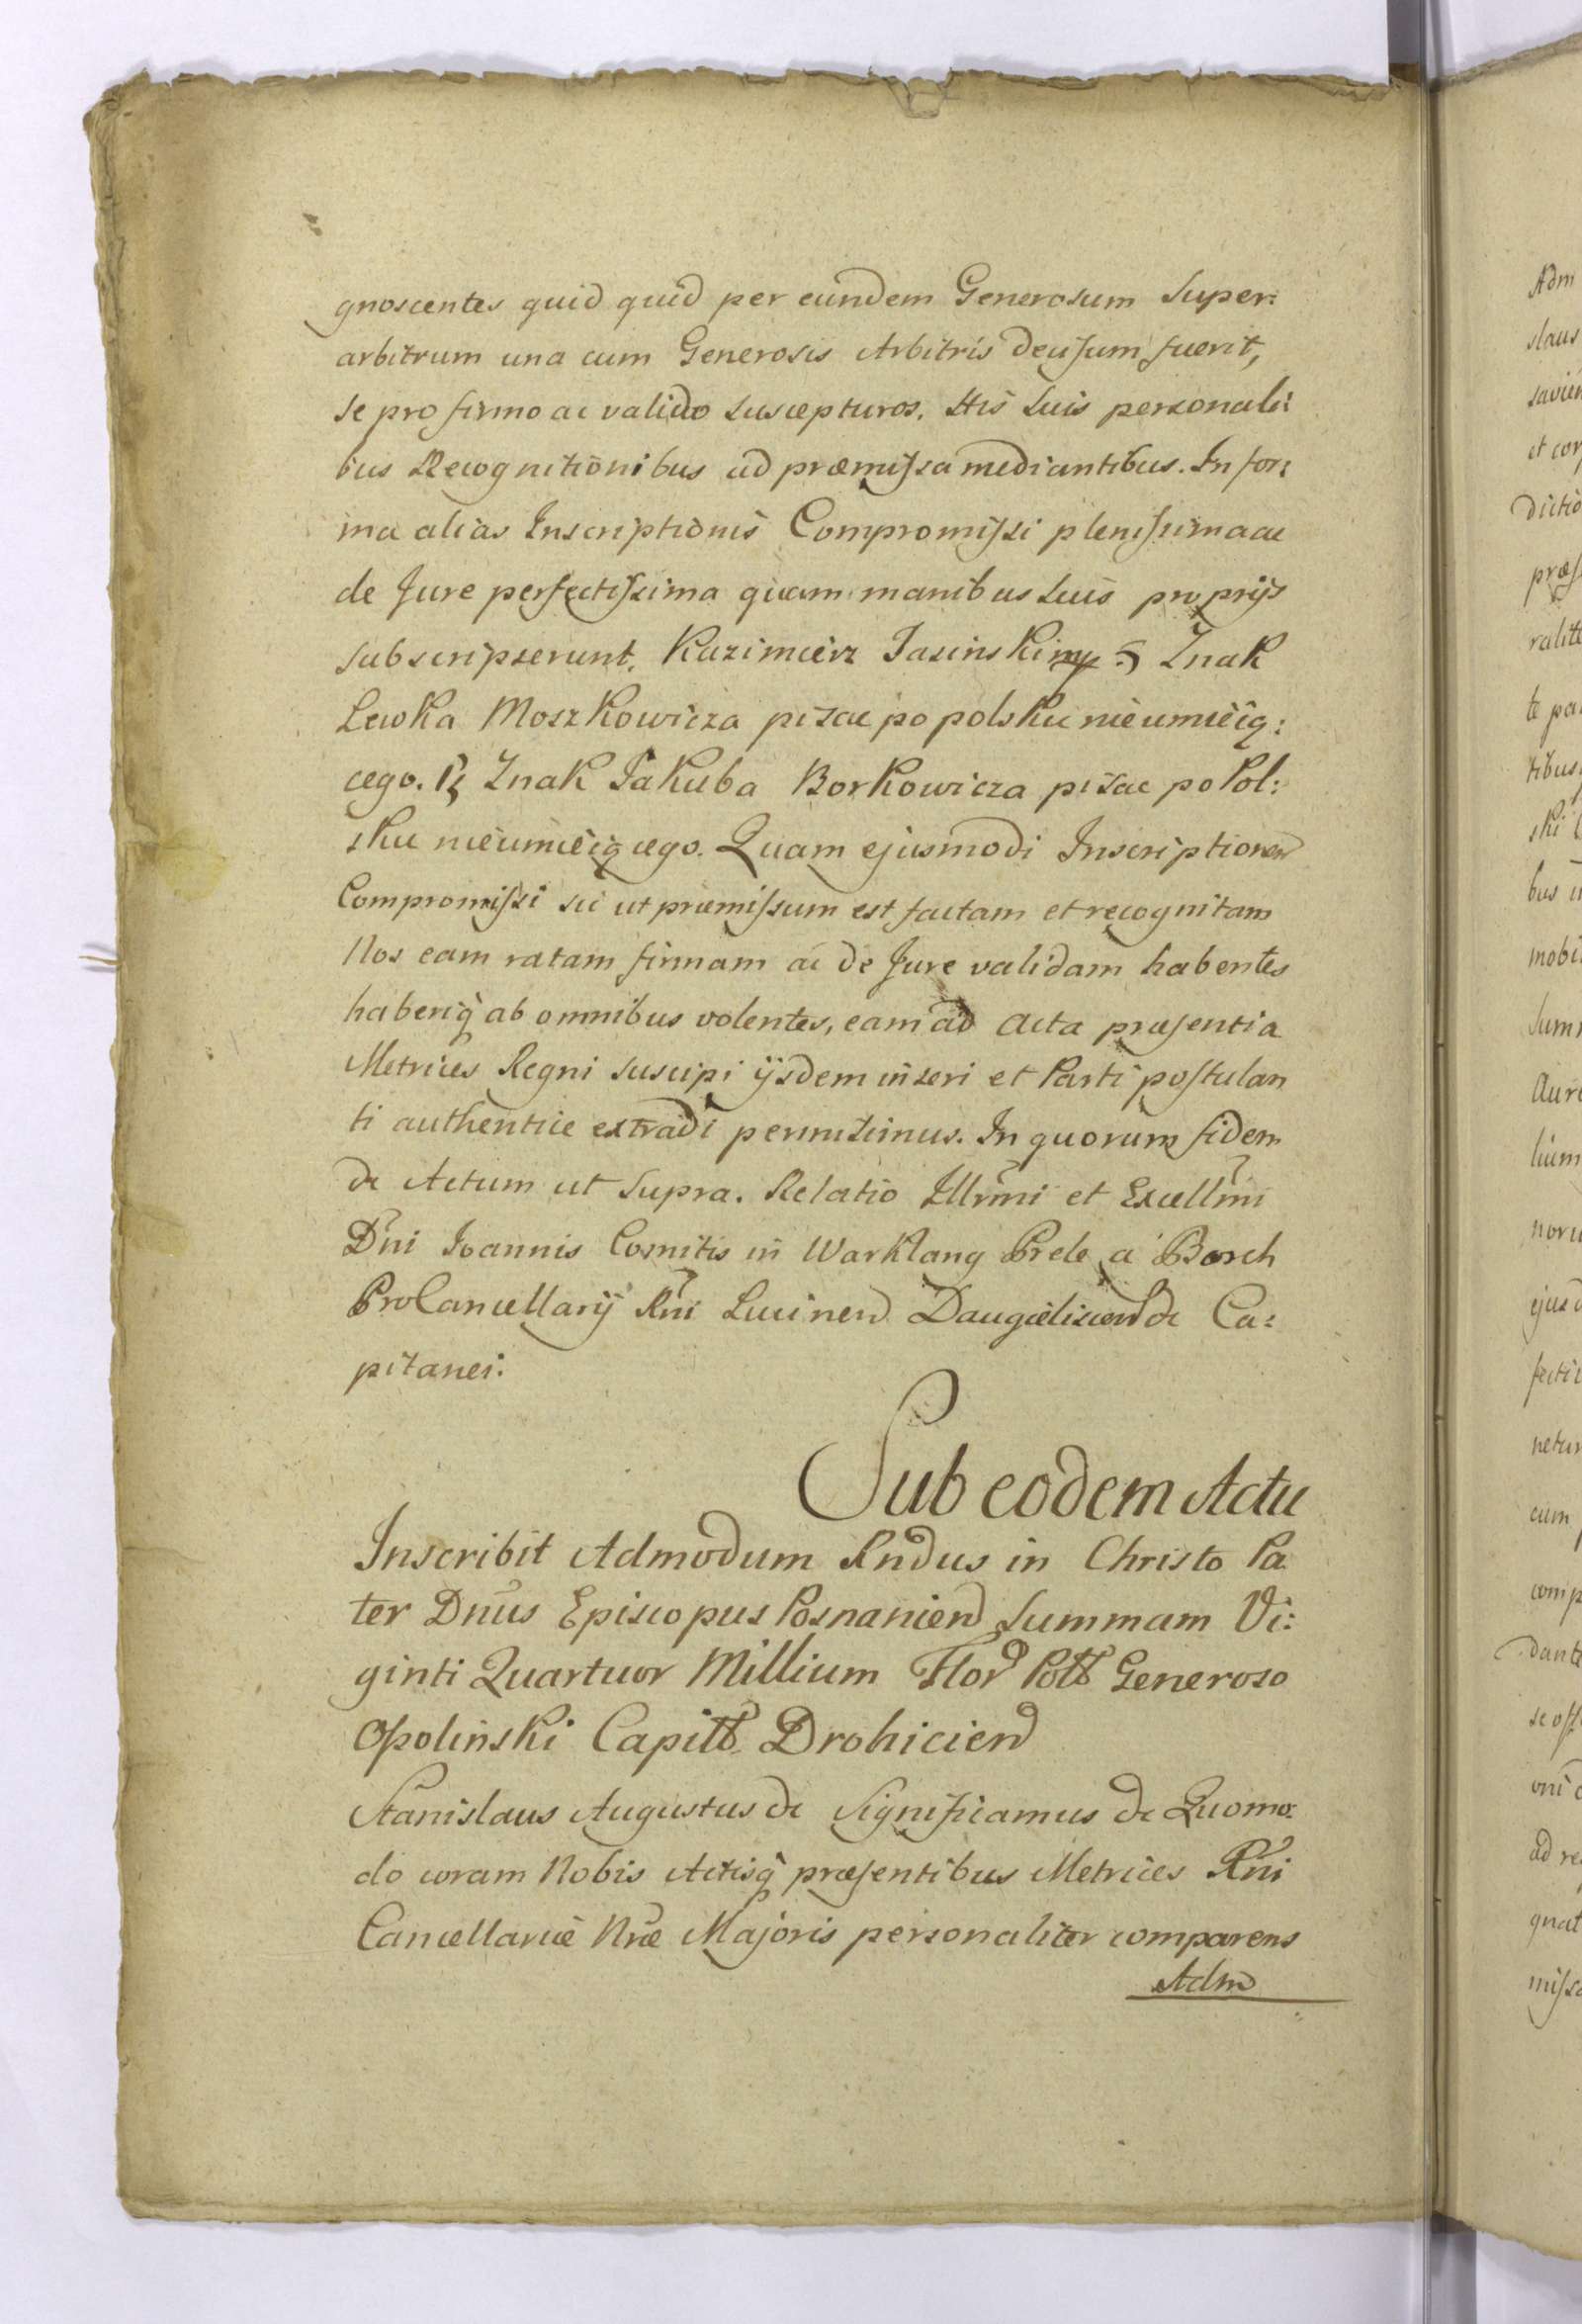 gnoscentes quid quid per eundem Generosum Super:
arbitrum una cum Generosis Arbitris decisum fuerit,
se pro firmo ac valido suscepturos. His suis personali:
bus Recognitionibus ad præmissa mediantibus. In for:
ma alias Inscriptionis Compromissi plenissima ac
de Jure perfectissima quam manibus suis proprijs
subscripserunt. Kazimierz Jasinski mp Znak
Lewka Moszkowicza pisac po polsku nieumieią:
cego. Znak Jakuba Borkowicza pisac po Pol:
sku nieumieiącego. Quam ejusmodi Inscriptionem
Compromissi sic ut præmissum est factam et recognitam
Nos eam ratam firmam ac de Jure validam habentes
haberiq ab omnibus volentes, eam ad Acta præsentia
Metrices Regni suscipi ijsdem inseri et Parti postulan
ti authentice extradi permisimus. In quorum fidem
&c Actum ut supra. Relatio Illrmi et Excellmi
Dni Joannis Comitis in Warklang Prele a Borch
ProCancellarij Rni Lucinen Daugieliscen &c Ca:
pitanei.
Sub eodem Actu
Inscribit Admodum Rndus in Christo Pa
ter Dnus Episcopus Posnanien Summam Vi:
ginti Quartuor Millium Flor Poll Generoso
Opolinski Capitt Drohicien
Stanislaus Augustus &c Significamus &c Quomo:
do coram Nobis Actisq præsentibus Metrices Rni
Cancellariæ Nræ Majoris personaliter comparens
Adm
Adm
slaus
dictio
te pa
tibus
ski
bus
mobi
cum
comp
ad re